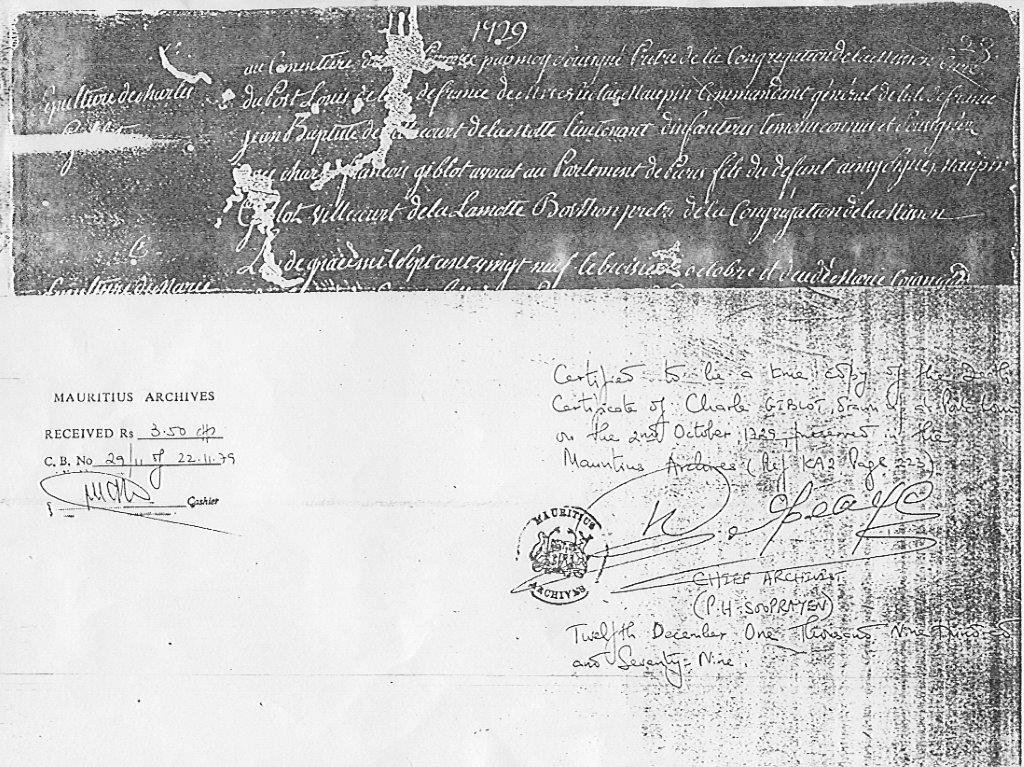 1729
23
au Cementiere paroisse par moy soussigné Prêtre de la Congregation de la Mission Curé
Sépulture de charles
Giblot
du Port Louis de l'isle de france de Mrs Nicolas Maupin Commandant général de l'isle de france
jean Baptiste de Villecourt de la Motte lieutenant d'infanterie temoins connus et soussignés
que charles françois giblot avocat au Parlement de Paris fils du defunt ainsy signé Maupin
Giblot Villecourt de la Lamotte Borthon pretre de la Congregation de la Mission
L'an de grace mil sept cent vingt neuf le troisieme octobre est decedé Marie
Sepulture de Marie
MAURITIUS ARCHIVES
RECEIVED Rs 3.50
C. B. No 29/11 of 22.11.79
Cashier
Certified to be a true copy of the Death
Certificate of Charle GIBLOT, drawn up at Port Louis
on the 2nd October, 1729, preserved in the
Mauritius Archives (Ref. KA2 Page 223)
MAURITIUS
ARCHIVES
CHIEF ARCHIVIST
(P.H. SOOPRAYEN)
Twelfth December One Thousand Nine Hundred
and Seventy-Nine.